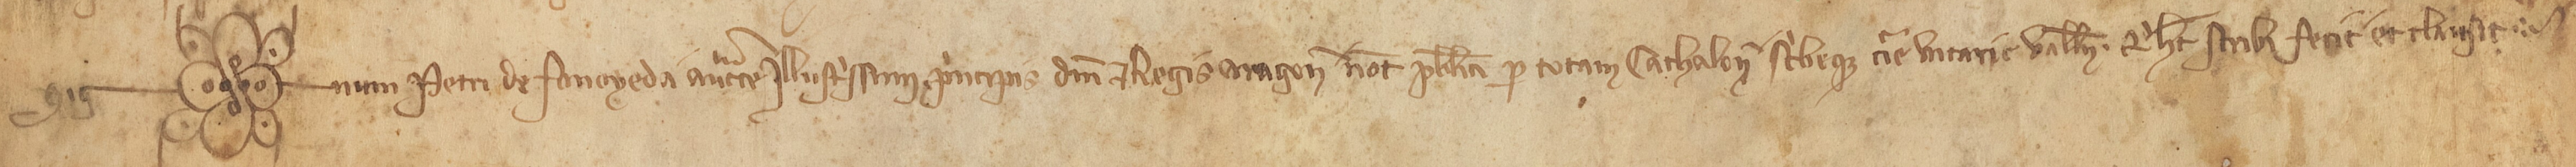 Sig num Petri de Fonoyeda auctte Illustrissimi principis dni Regis Aragon not publici p totam Cathaloñ scribeq; curie vicarie Vallñ. Qi hec scribi fecit et clausit